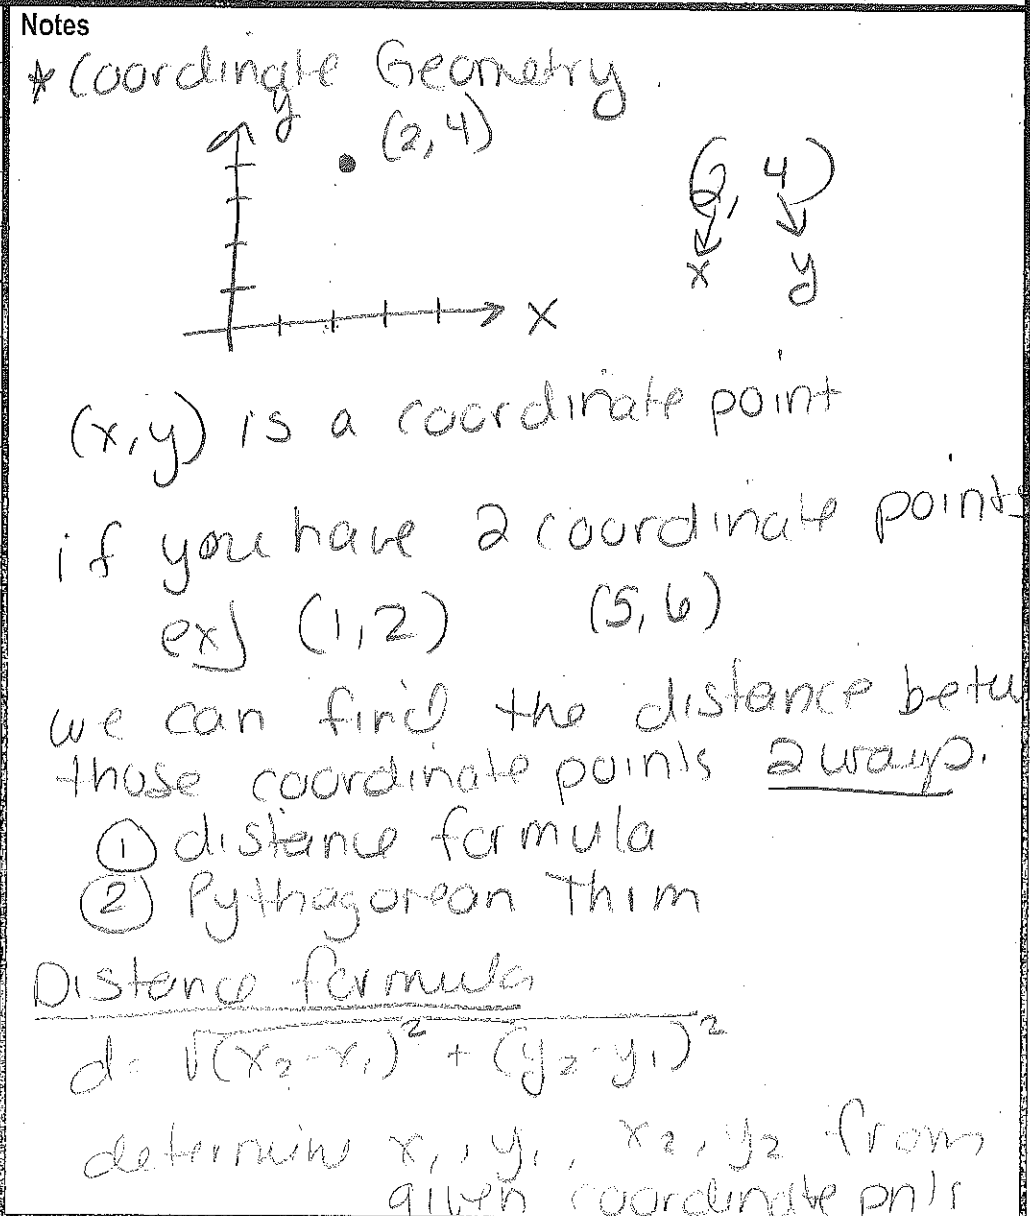 Notes
* Coordinate Geometry.
y
(2, 4)
(2, 4)
x
y
x
(x, y) is a coordinate point
if you have 2 coordinate points
ex] (1, 2) (5, 6)
we can find the distance betw
those coordinate points 2 ways.
① distance formula
② Pythagorean Thm
Distance formula
d = √(x₂-x₁)² + (y₂-y₁)²
determine x₁, y₁, x₂, y₂ from
given coordinate pnts